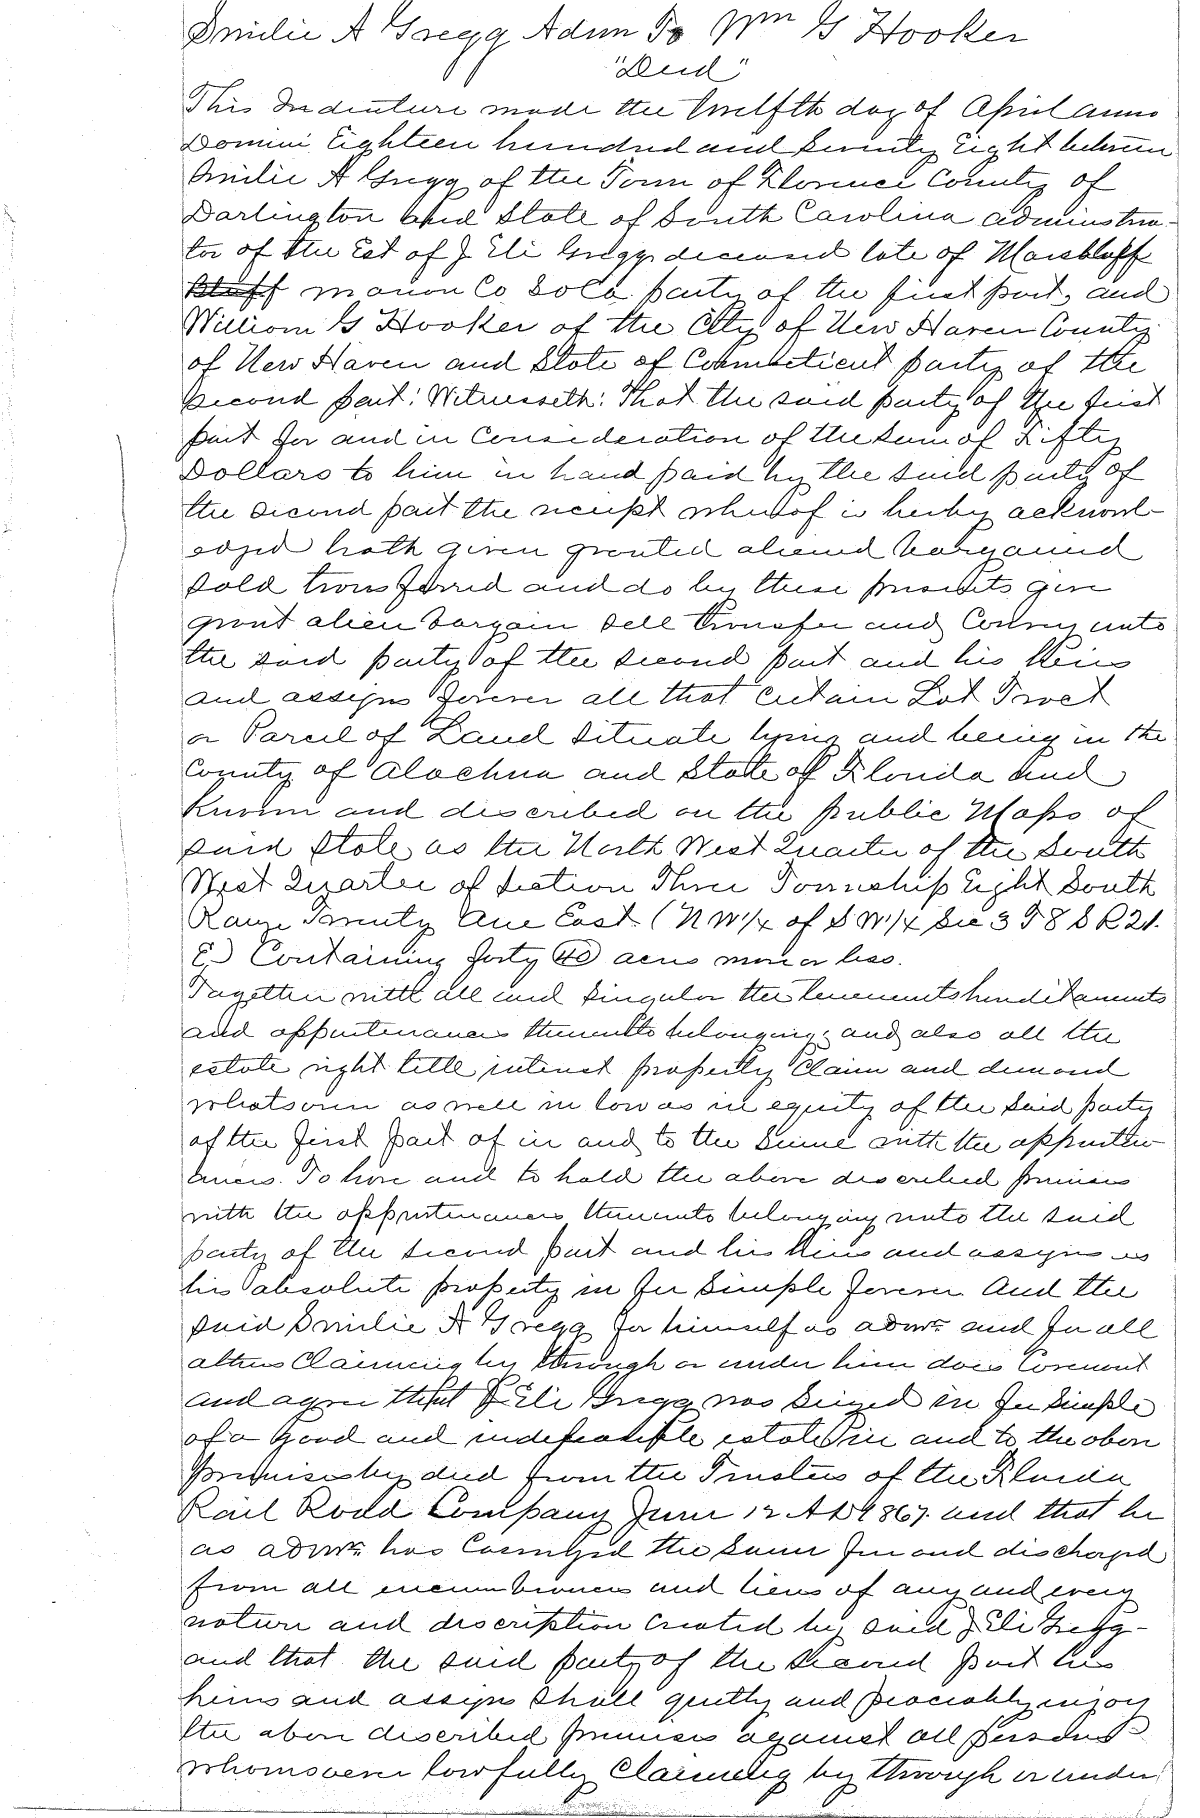 Smilie A Gregg Adum To Wm G Hooker
"Deed"
This Indenture made the twelfth day of April anno
Domini Eighteen hundred and Seventy Eight between
Smilie A Gregg of the Town of Florence County of
Darlington and State of South Carolina administra-
tor of the Est of J Eli Gregg deceased late of Marsbluff
Bluff marion Co So Ca party of the first part, and
William G Hooker of the City of New Haven County
of New Haven and State of Connecticut party of the
second part: Witnesseth: That the said party of the first
part for and in Consideration of the sum of Fifty
Dollars to him in hand paid by the said party of
the second part the receipt whereof is herby acknowl-
edged hath given granted aliened bargained
sold transferred and do by these presents give
grant alien bargain sell transfer and Convey unto
the said party of the second part and his heirs
and assigns forever all that certain Lot Tract
or Parcel of Land situate lying and being in the
County of Alachua and State of Florida and
Known and described on the public Maps of
said State as the North West Quarter of the South
West Quarter of Section Three Township Eight South
Range Twenty One East (N W 1/4 of S W 1/4 Sec 3 T 8 S R 21.
E.) Containing forty (40) acres more or less.
Together with all and singular the tenements hereditaments
and appurtenances thereunto belonging: and also all the
estate right title interest property Claim and demand
whatsoever as well in law as in equity of the said party
of the first part of in and to the same with the appurten-
ances. To have and to hold the above described premises
with the appurtenances thereunto belonging unto the said
party of the second part and his heirs and assigns as
his absolute property in fee simple forever. And the
said Smilie A Gregg for himself as admr. and for all
others Claiming by through or under him does Covenant
and agree that J Eli Gregg was Seized in fee simple
of a good and indefeasible estate in and to the above
premises by deed from the Trustees of the Florida
Rail Road Company June 12 AD 1867. and that he
as admr. has Caused the same free and discharged
from all encumbrances and liens of any and every
nature and description created by said J Eli Gregg-
and that the said party of the second part his
heirs and assigns shall quietly and peaceably enjoy
the above described premises against all persons
whomsoever lawfully Claiming by through or under